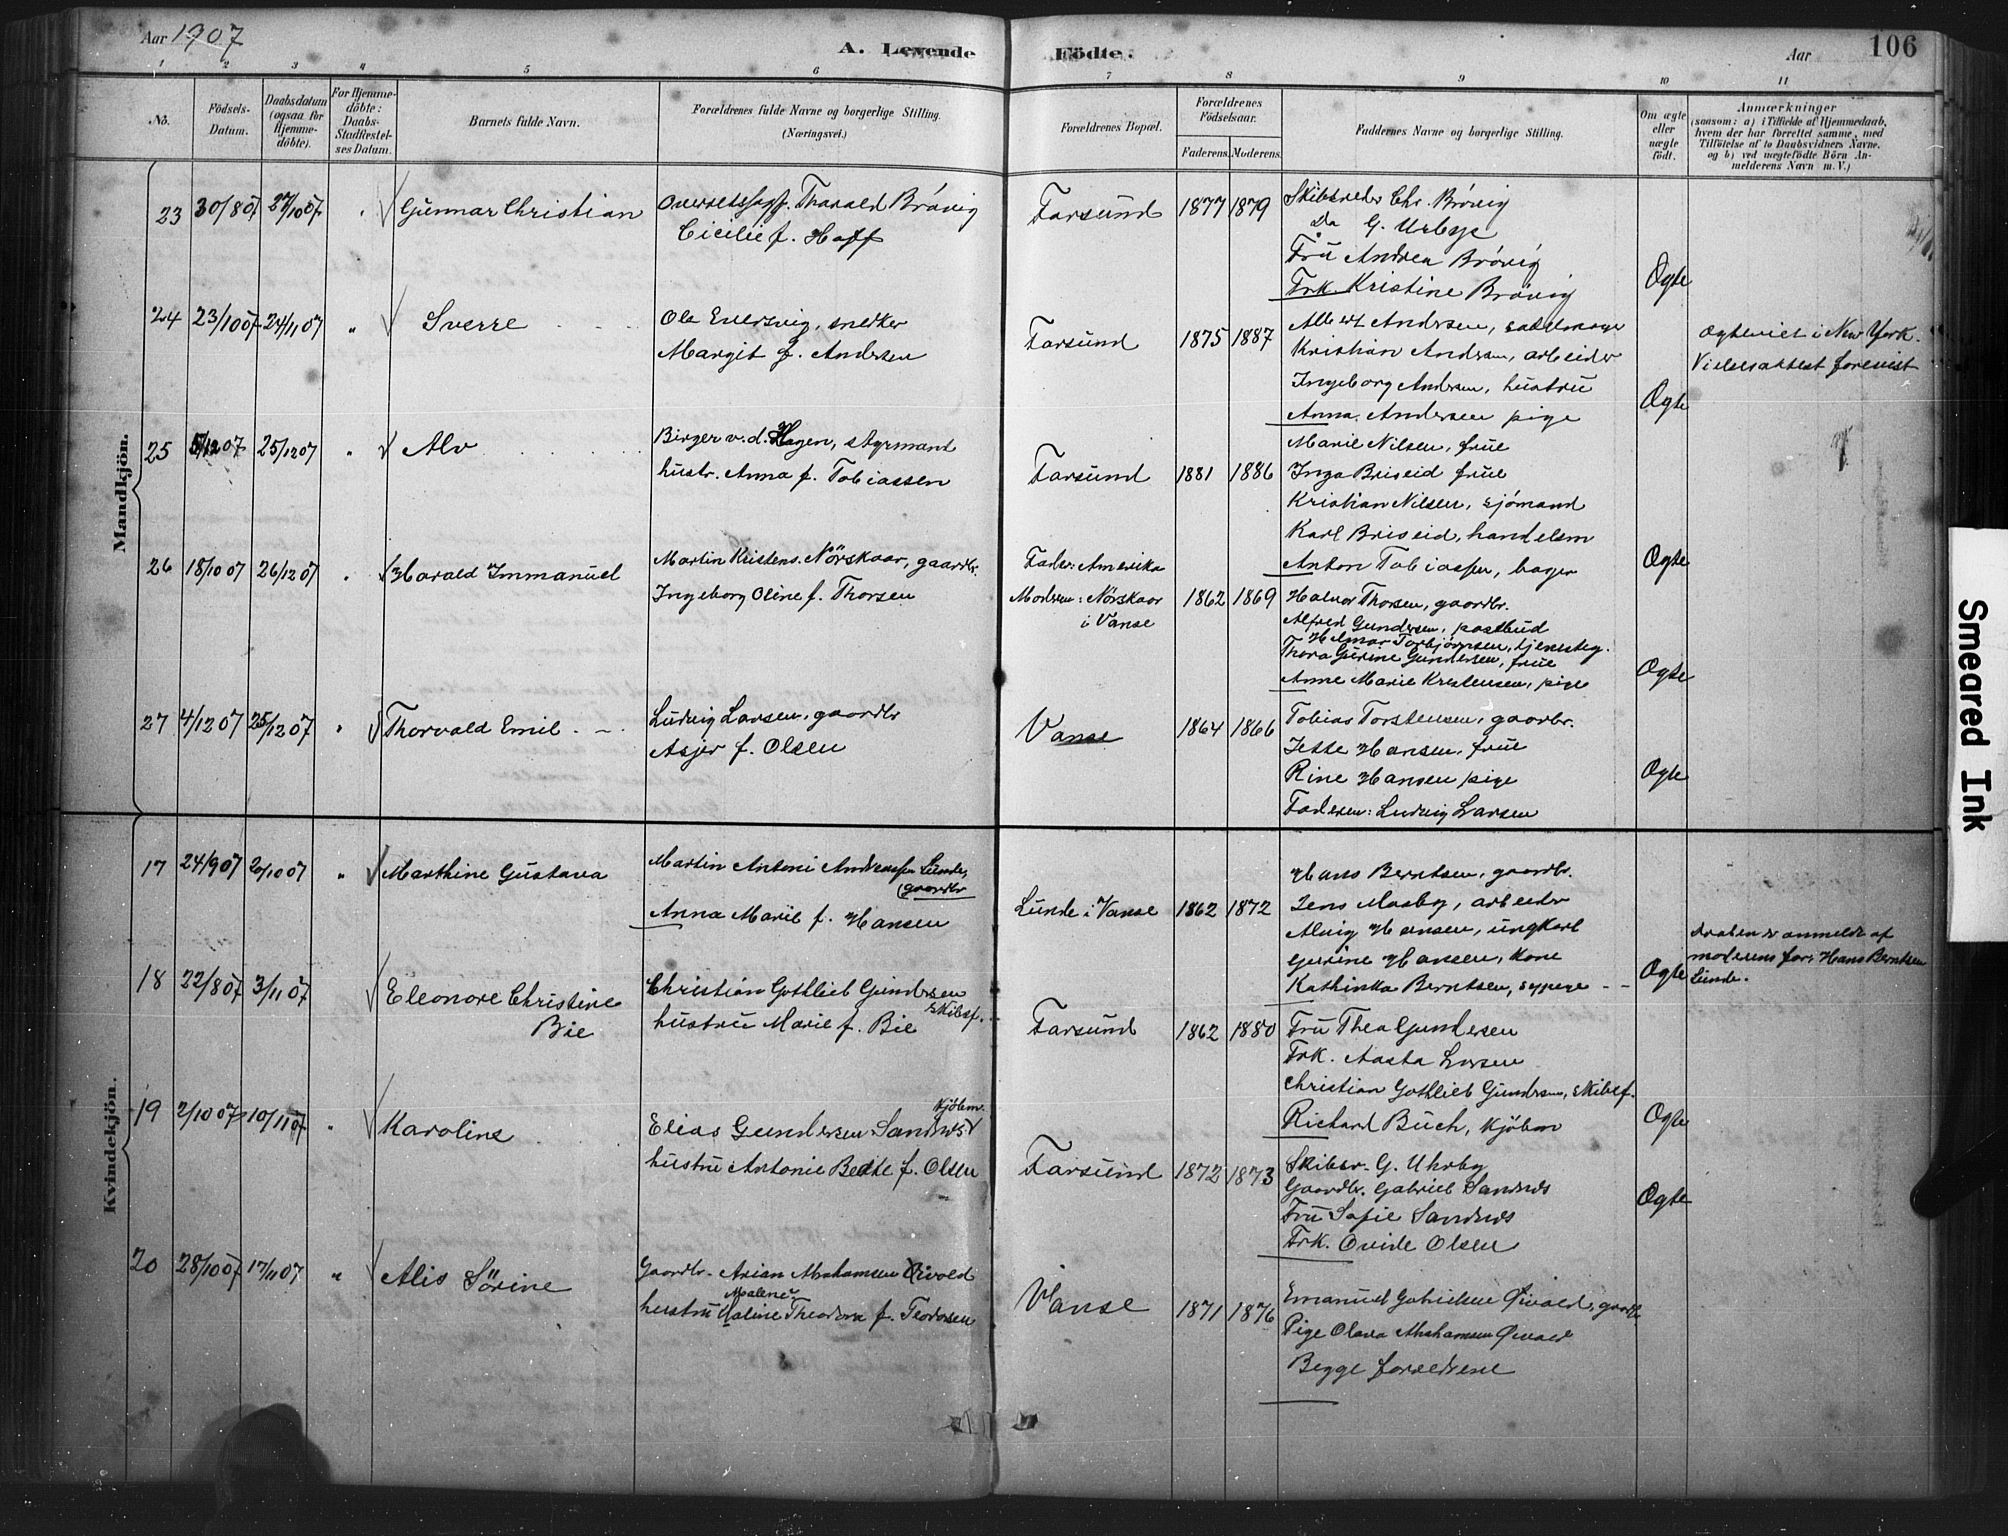 Aar 1907
A. Levende Födte.
Aar
106
1 2 3 4 5 6 7 8 9 10 11
No.
Födsels-Datum.
Daabsdatum (ogsaa for Hjemme-döbte).
For Hjemme-döbte: Daabs-Stadfæstel-ses Datum.
Barnets fulde Navn.
Forældrenes fulde Navne og borgerlige Stilling. (Næringsvei.)
Forældrenes Bopæl.
Forældrenes Födselsaar.
Faderens. Moderens.
Faddernes Navne og borgerlige Stilling.
Om ægte eller uægte födt.
Anmærkninger
(saasom: a) i Tilfælde af Hjemmedaab,
hvem der har forrettet samme, med
Tilföielse af to Daabsvidners Navne.
og b) ved uægtefödte Börn An-
melderens Navn m. V.)
Mandkjön.
23 30/8 07 27/10 07 Gunnar Christian
Overretssagf. Tharald Brøvig
Cicilie f. Hoff
Farsund 1877 1879
Skibsreder Chr. Brøvig
Do G. Urbye
Fru Andrea Brøvig
Frk. Kristine Brøvig
Ægte
24 23/10 07 24/11 07 " Sverre
Ole Eversvig, snedker
Margit f. Andersen
Farsund 1875 1887
Albert Andersen, sadelmager
Kristian Andersen, arbeider
Ingeborg Andersen, hustru
Anna Andersen pige
Ægte
Ægteviet i New York.
Vielsesattest forevist
25 5/12 07 25/12 07 " Alv
Birger v. d. Hagen, styrmand
hustr. Anna f. Tobiassen
Farsund 1881 1886
Marie Nilsen, frue
Inga Briseid frue
Kristian Nilsen, sjömand
Karl Briseid, handelsm
Anton Tobiassen, bager
Ægte
26 18/10 07 26/12 07 " Harald Immanuel
Martin Kristens. Nörskaar, gaardbr.
Ingeborg Oline f. Thorsen
Fader: Amerika
Moderen: Nörskaar
i Vanse
1862 1869
Halvor Thorsen, gaardbr.
Alfred Gundersen, postbud
Helmar Torbjørnsen, tjenesteg.
Thora Gurine Gundersen, frue
Anne Marie Kristensen, pige
Ægte
27 4/12 07 25/12 07 " Thorvald Emil
Ludvig Larsen, gaardbr
Asjer f. Olsen
Vanse 1864 1866
Tobias Torstensen, gaardbr.
Jette Hansen, frue
Rine Hansen pige
Faderen: Ludvig Larsen
Ægte
Kvindekjön.
17 24/9 07 20/10 07 " Marthine Gustava
Martin Antoni Andreassen Lunde,
gaardbr
Anna Marie f. Hansen
Lunde i Vanse 1862 1872
Hans Berntsen, gaardbr.
Jens Mosby, arbeider
Alvig Hansen, ungkarl
Gurine Hansen, kone
Kathinka Berntsen, sypige
Ægte
Daaben er anmeldt af
moderens far: Hans Berntsen
Lunde.
18 22/8 07 3/11 07 Eleonore Christine
Bie
Christian Gothlieb Gundersen
skibsf.
hustru Marie f. Bie
Farsund 1862 1880
Fru Thea Gundersen
Frk. Aasta Larsen
Christian Gothlieb Gundersen, skibsf.
Richard Buch, kjöbm
Ægte
19 2/10 07 10/11 07 " Karoline
Elias Gundersen Sandnes
kjöbm.
hustru Antonie Beate f. Olsen
Farsund 1872 1873
Skibsr. G. Uhrby
Gaardbr. Gabriel Sandnes
Fru Sofie Sandnes
Frk. Ovide Olsen
Ægte
20 28/10 07 17/11 07 " Alis Sörine
Gaardbr. Arian Abrahamsen Öivold
Malene
hustru Theodora f. Teodorsen
Vanse 1871 1876
Emanuel Gabrielsen Øivold, gaardb
Pige Olava Abrahamsen Øivold
Begge forældrene
Smeared Ink